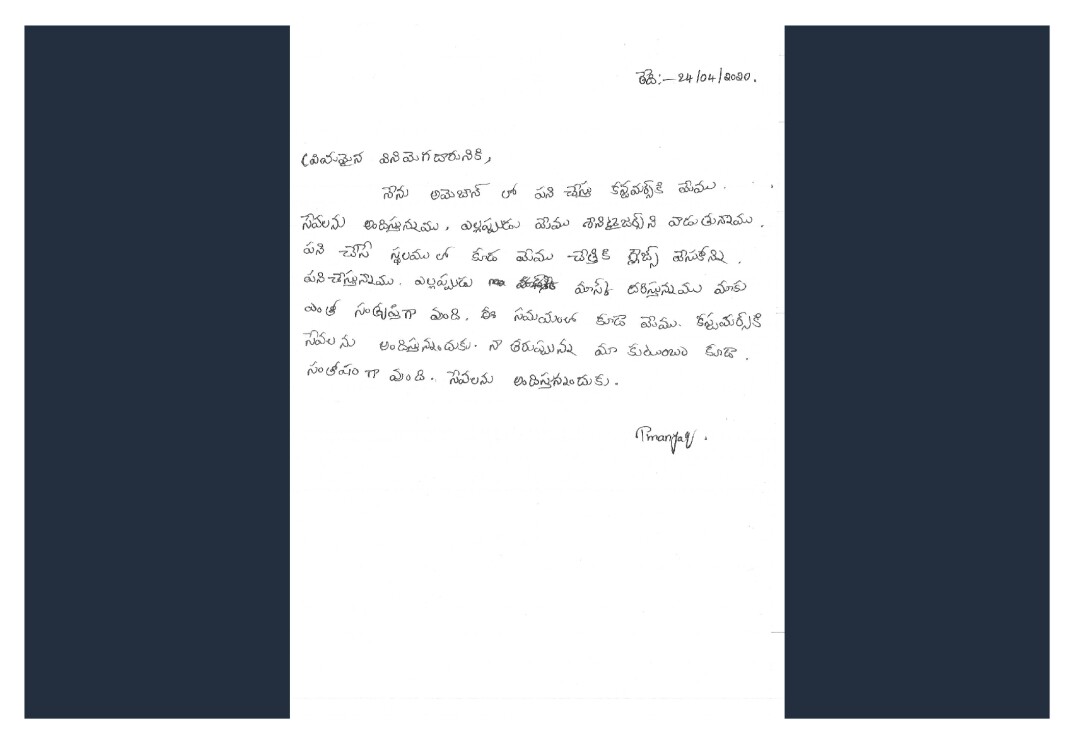 తేది:- 24/04/2020.
ప్రియమైన వినిమెగదారునికి,
నేను అమెజాన్ లో పని చేస్తూ కస్టమర్స్‌కి మేము.
సేవలను అందిస్తున్నాము, ఎల్లప్పుడు మేము శానిటైజర్స్‌ని వాడుతున్నాము.
పని చేసే స్థలములో కూడ మేము చేతికి గ్లౌజ్స్ వేసుకొని.
పనిచేస్తున్నాము. ఎల్లప్పుడు మాస్క్ దరిస్తున్నాము మాకు
ఎంతో సంతృప్తిగా వుంది. ఈ సమయంలో కూడా మేము. కస్టమర్స్‌కి
సేవలను అందిస్తున్నందుకు. నా తరుపున మా కుటుంబం కూడా.
సంతోషం గా వుంది. సేవలను అందిస్తున్నందుకు.